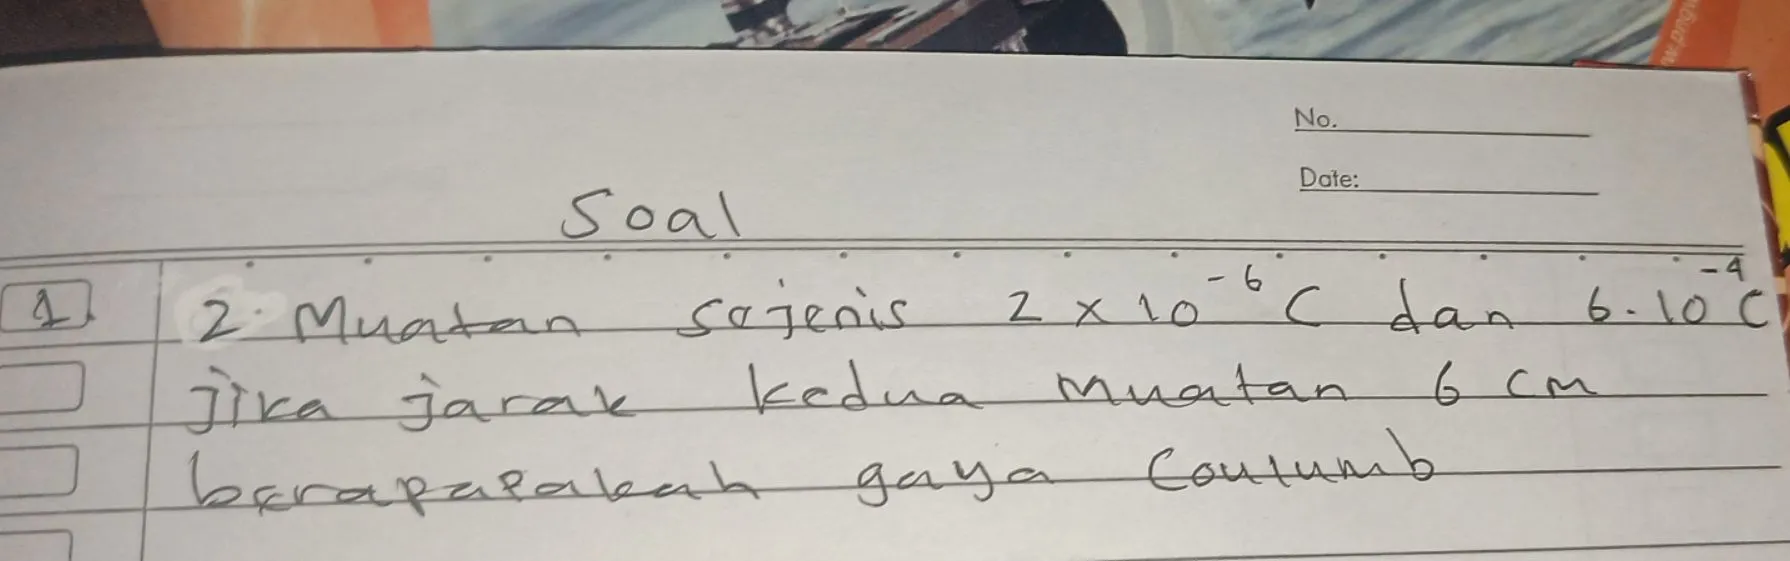 No.
Date:
Soal
1. 2. Muatan sejenis 2 x 10⁻⁶ C dan 6.10⁻⁴ C
jika jarak kedua muatan 6 cm
gaya Coulumb